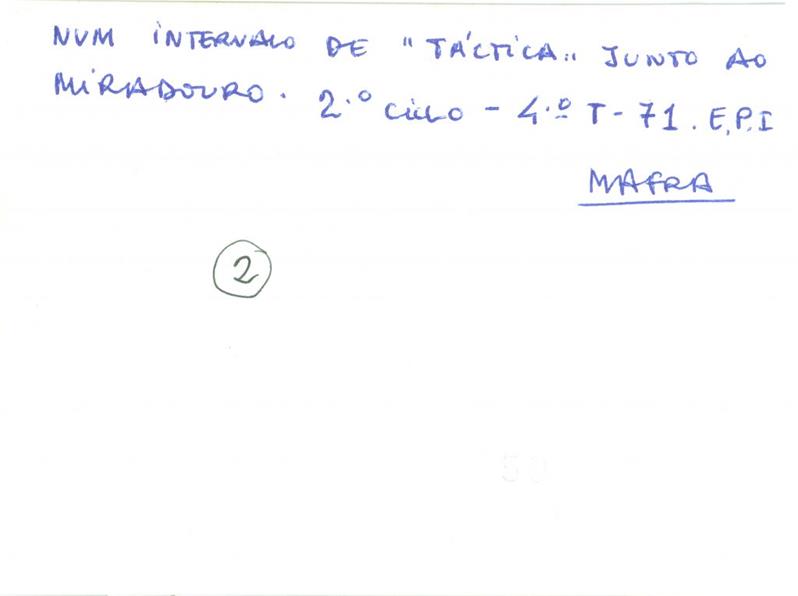 NUM INTERVALO DE "TÁCTICA" JUNTO AO
MIRADOURO. 2.º CICLO - 4.º T - 71. E.P.I
MAFRA
2